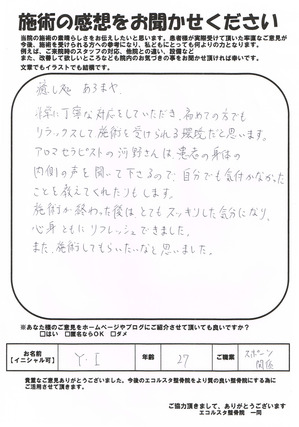 施術の感想をお聞かせください
当院の施術の素晴らしさをお伝えしたいと思います。患者様が実際受けて頂いた率直なご意見が
今後、施術を受けられる方への参考になり、私どもにとっても何よりの力となります。
例えば、ご来院時のスタッフの対応、他院との違い、設備など
また、改善して欲しいところなども院内のお気づきの事をお聞かせ頂ければ幸いです。
文章でもイラストでも結構です。
癒し処 あろまや
常に丁寧な対応をしていただき、初めての方でも
リラックスして施術を受けられる環境だと思います。
アロマセラピストの河野さんは患者の身体の
内側の声を聞いて下さるので、自分でも気付かなかった
ことを教えてくれたりもします。
施術が終わった後はとてもスッキリした気分になり、
心身ともにリフレッシュできました。
また、施術してもらいたいなと思いました。
※あなた様のご意見をホームページやブログにご紹介させて頂いても良いですか？
□はい □匿名ならOK □ダメ
お名前
【イニシャル可】
Y・I
年齢
27
ご職業
スポーツ
関係
貴重なご意見ありがとうございました。今後のエコルスタ整骨院をより質の良い整骨院にする為に
ご活用させて頂きます。
ご協力頂きまして、ありがとうございます
エコルスタ整骨院 一同